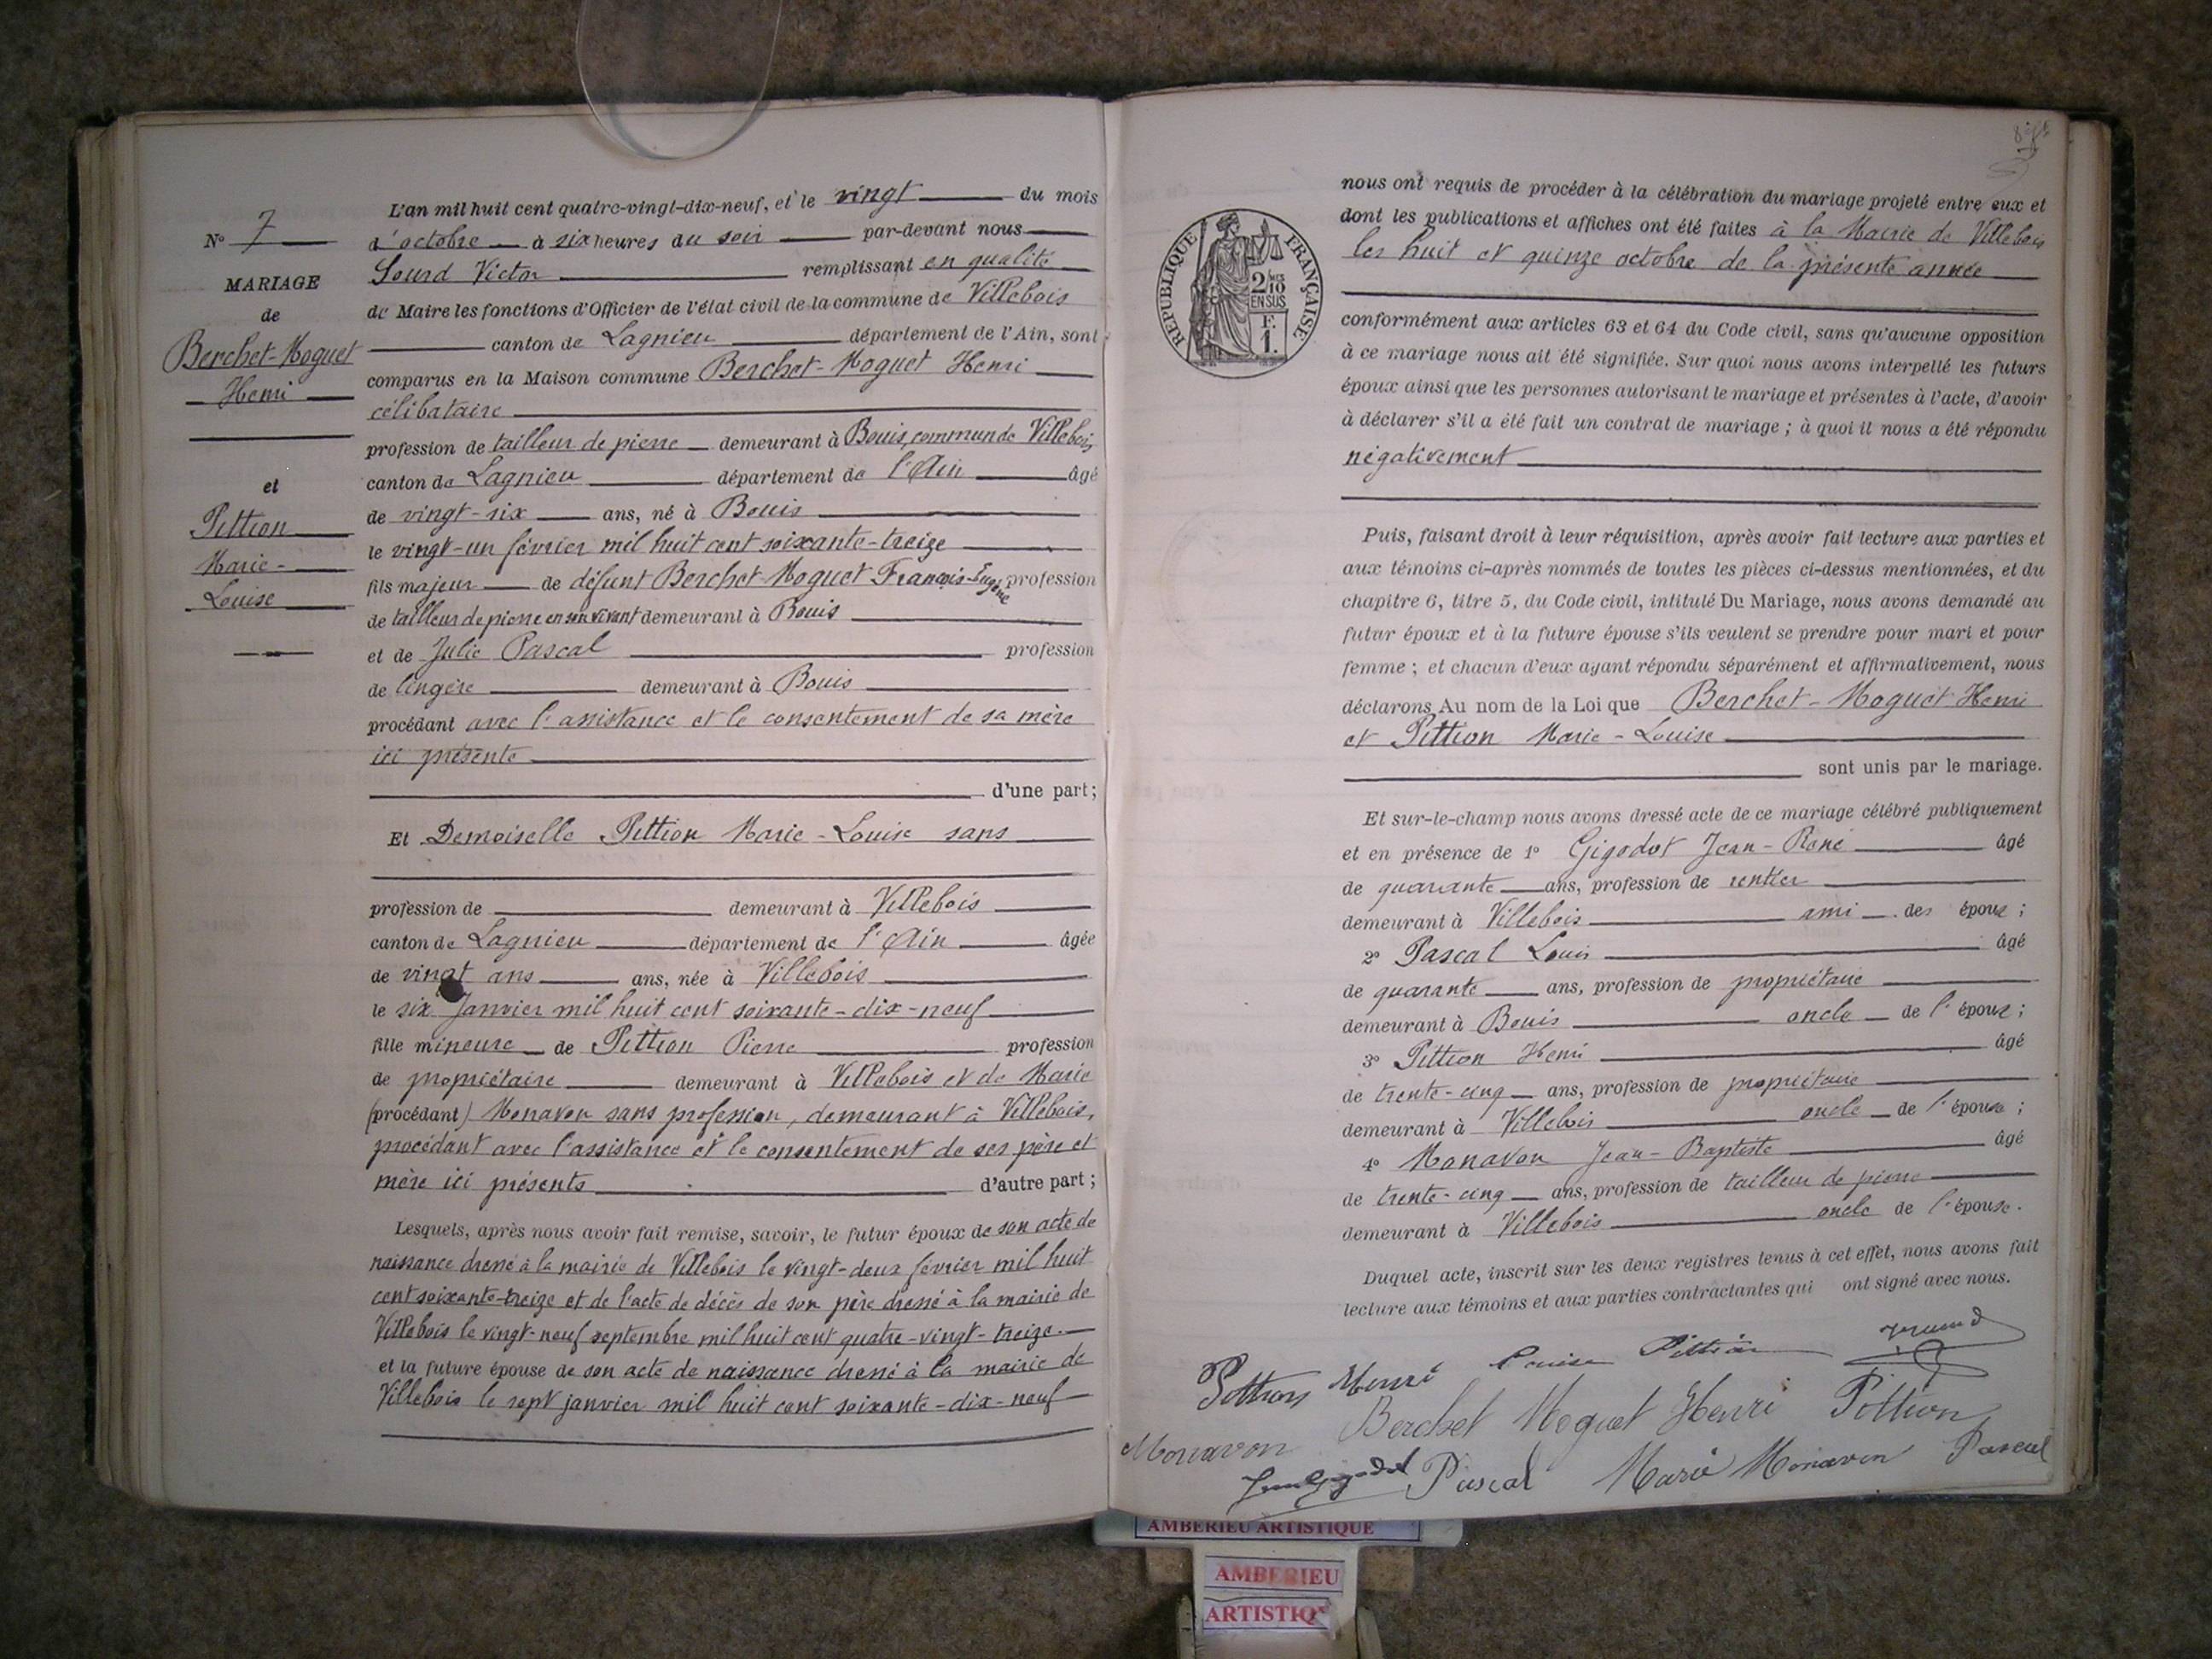 N° 7
MARIAGE
de
Berchet-Moguet
Henri
et
Pittion
Marie-
Louise
L'an mil huit cent quatre-vingt-dix-neuf, et le vingt du mois
d'octobre à six heures du soir par-devant nous
Sourd Victor remplissant en qualité
de Maire les fonctions d'Officier de l'état civil de la commune de Villebois
canton de Lagnieu département de l'Ain, sont
comparus en la Maison commune Berchet-Moguet Henri
célibataire
profession de tailleur de pierre demeurant à Bouis, commun de Villebois
canton de Lagnieu département de l'Ain âgé
de vingt-six ans, né à Bouis
le vingt-un février mil huit cent soixante-treize
fils majeur de défunt Berchet-Moguet François-Eugène profession
de tailleur de pierre en son vivant demeurant à Bouis
et de Julie Pascal profession
de lingère demeurant à Bouis
procédant avec l'assistance et le consentement de sa mère
ici présente
d'une part;
Et Demoiselle Pittion Marie-Louise sans
profession de demeurant à Villebois
canton de Lagnieu département de l'Ain âgée
de vingt ans ans, née à Villebois
le six Janvier mil huit cent soixante-dix-neuf
fille mineure de Pittion Pierre profession
de propriétaire demeurant à Villebois et de Marie
(procédant) Monavon sans profession, demeurant à Villebois,
procédant avec l'assistance et le consentement de ses père et
mère ici présents d'autre part;
Lesquels, après nous avoir fait remise, savoir, le futur époux de son acte de
naissance dressé à la mairie de Villebois le vingt-deux février mil huit
cent soixante-treize et de l'acte de décès de son père dressé à la mairie de
Villebois le vingt-neuf septembre mil huit cent quatre-vingt-treize.
et la future épouse de son acte de naissance dressé à la mairie de
Villebois le sept janvier mil huit cent soixante-dix-neuf
RÉPUBLIQUE FRANÇAISE
2 MES
10
EN SUS
F.
1.
nous ont requis de procéder à la célébration du mariage projeté entre eux et
dont les publications et affiches ont été faites à la Mairie de Villebois
les huit et quinze octobre de la présente année
conformément aux articles 63 et 64 du Code civil, sans qu'aucune opposition
à ce mariage nous ait été signifiée. Sur quoi nous avons interpellé les futurs
époux ainsi que les personnes autorisant le mariage et présentes à l'acte, d'avoir
à déclarer s'il a été fait un contrat de mariage; à quoi il nous a été répondu
négativement
Puis, faisant droit à leur réquisition, après avoir fait lecture aux parties et
aux témoins ci-après nommés de toutes les pièces ci-dessus mentionnées, et du
chapitre 6, titre 5, du Code civil, intitulé Du Mariage, nous avons demandé au
futur époux et à la future épouse s'ils veulent se prendre pour mari et pour
femme; et chacun d'eux ayant répondu séparément et affirmativement, nous
déclarons Au nom de la Loi que Berchet-Moguet Henri
et Pittion Marie-Louise
sont unis par le mariage.
Et sur-le-champ nous avons dressé acte de ce mariage célébré publiquement
et en présence de 1° Gigodot Jean-René âgé
de quarante ans, profession de rentier
demeurant à Villebois ami des époux;
2° Pascal Louis âgé
de quarante ans, profession de propriétaire
demeurant à Bouis oncle de l'époux;
3° Pittion Henri âgé
de trente-cinq ans, profession de propriétaire
demeurant à Villebois oncle de l'épouse;
4° Monavon Jean-Baptiste âgé
de trente-cinq ans, profession de tailleur de pierre
demeurant à Villebois oncle de l'épouse.
Duquel acte, inscrit sur les deux registres tenus à cet effet, nous avons fait
lecture aux témoins et aux parties contractantes qui ont signé avec nous.
Pittion Henri Louise Pittion
Berchet Moguet Henri Pittion
Monavon
Jean Gigodot Pascal Marie Monavon Pascal
AMBERIEU ARTISTIQUE
AMBERIEU
ARTISTIQ